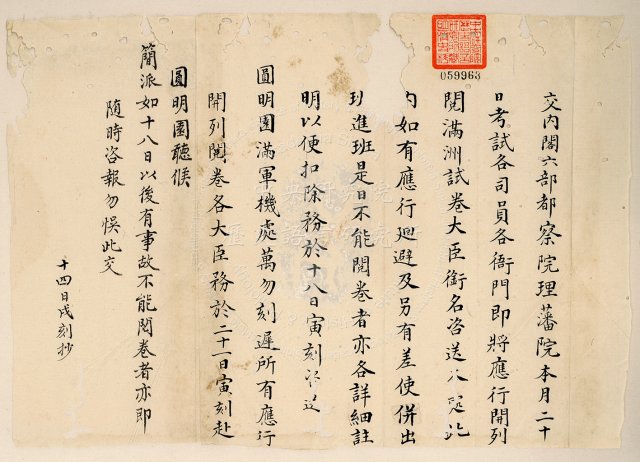 交內閣六部都察院理藩院本月二十
日考試各司員各衙門即將應行開列
閱滿洲試卷大臣銜名咨送
內如有應行迴避及另有差使併出
班進班是日不能閱卷者亦各詳細註
明以便扣除務於十八日寅刻咨送
圓明園滿軍機處萬勿刻遲所有應行
開列閱卷各大臣務於二十一日寅刻赴
圓明園聽候
簡派如十八日以後有事故不能閱卷者亦即
随時咨報勿悞此交
十四日戌刻抄
059963